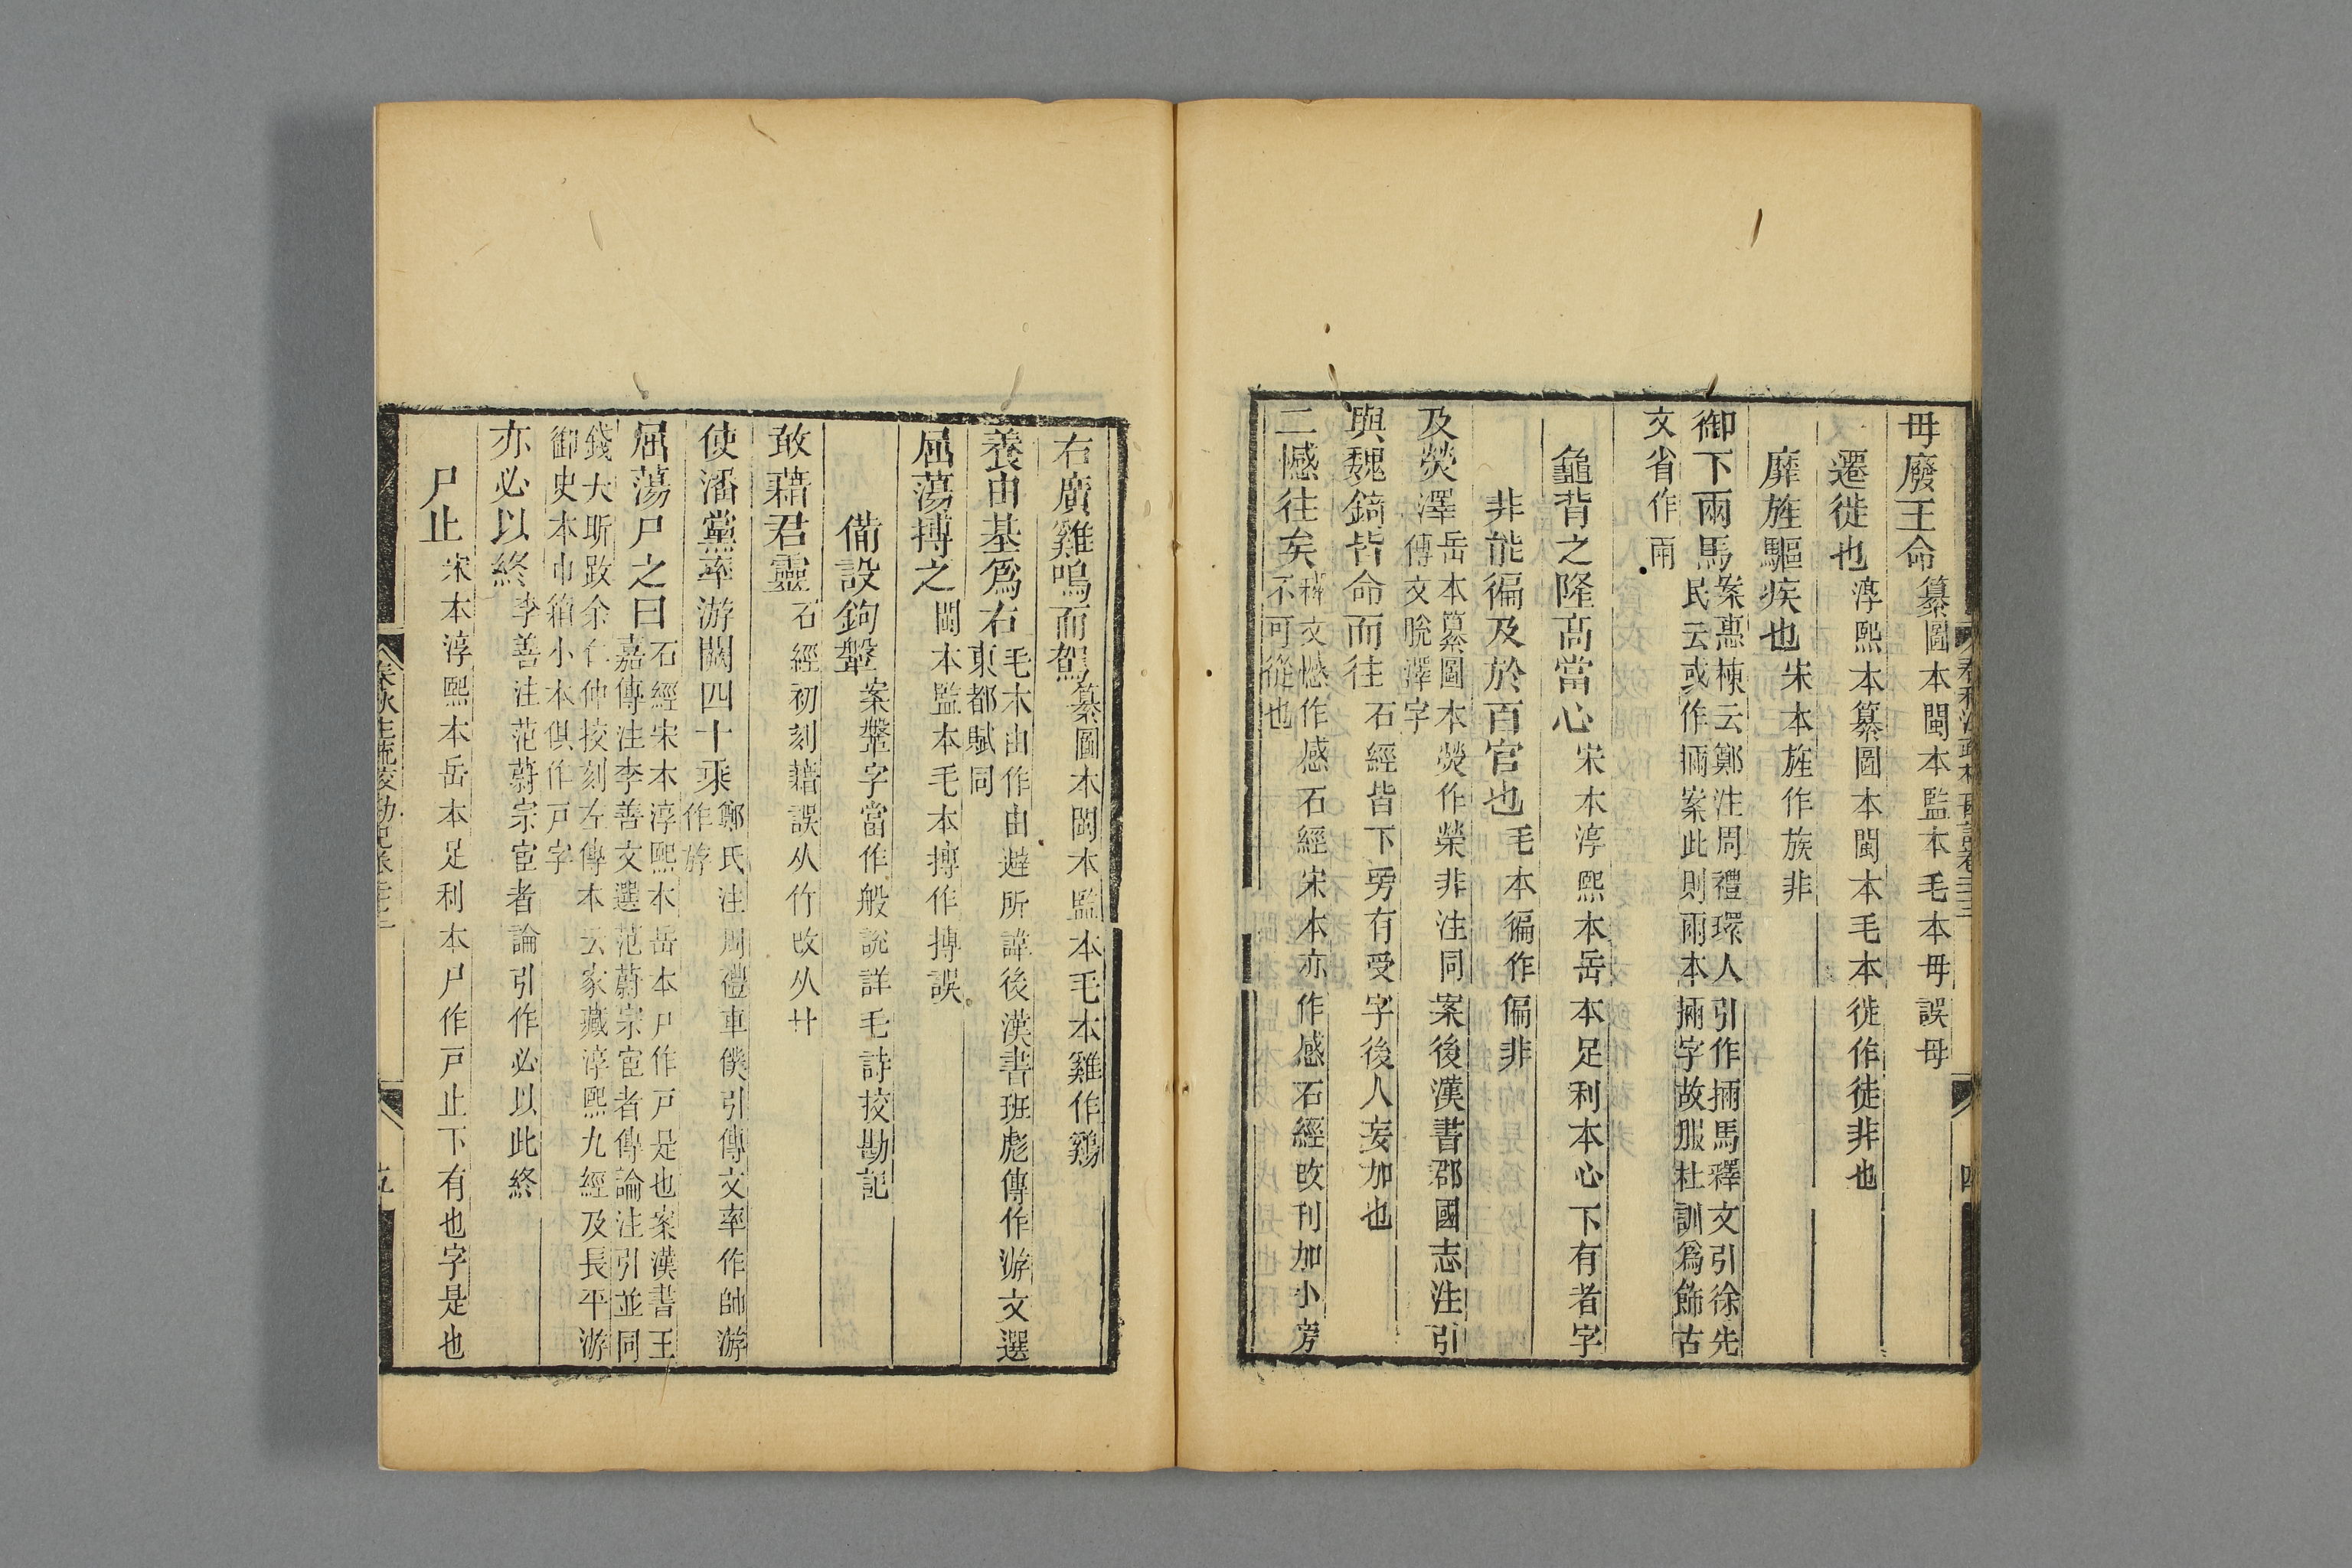 毋廢王命纂圖本閩本監本毛本毋誤母
遷徙也淳熙本纂圖本閩本毛本徙作徒非也
靡旌驅疾也宋本旌作族非
御下兩馬案惠棟云鄭注周禮環人引作掚馬釋文引徐先
民云或作掚案此則兩本掚字故服杜訓爲飾古
文省作兩
龜背之隆高當心宋本淳熙本岳本足利本心下有者字
非能徧及於百官也毛本徧作偏非
及熒澤岳本纂圖本熒作榮非注同案後漢書郡國志注引
傳文脫澤字
與魏錡皆命而往石經皆下旁有受字後人妄加也
二憾往矣釋文憾作感石經宋本亦作感石經改刊加小旁
不可從也
右廣雞鳴而駕纂圖本閩本監本毛本雞作鷄
養由基爲右毛本由作由避所諱後漢書班彪傳作游文選
東都賦同
屈蕩搏之閩本監本毛本搏作摶誤
備設鉤鞶案鞶字當作般說詳毛詩挍勘記
敢藉君靈石經初刻藉誤从竹改从艸
使潘黨率游闕四十乘鄭氏注周禮車僕引傳文率作帥游
作斿
屈蕩尸之曰石經宋本淳熙本岳本尸作戸是也案漢書王
嘉傳注李善文選范蔚宗宦者傳論注引並同
錢大昕跋余仁仲挍刻左傳本云家藏淳熙九經及長平游
御史本巾箱小本俱作戸字
亦必以終李善注范蔚宗宦者論引作必以此終
尸止宋本淳熙本岳本足利本尸作戸止下有也字是也
春秋注疏挍勘記卷二十三
五